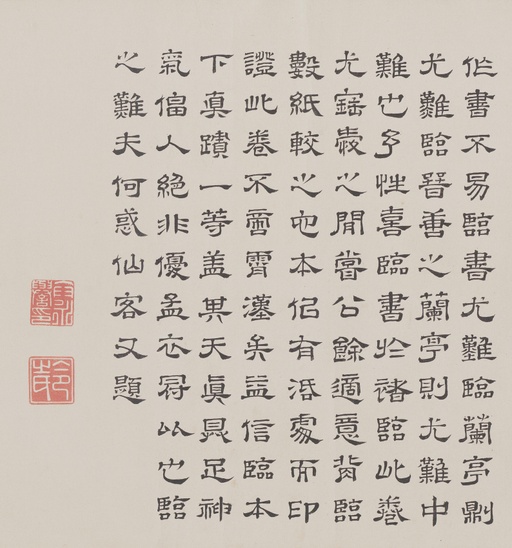 作書不易臨書尤難臨蘭亭則
尤難臨晉善之蘭亭則尤難中
難也予性喜臨書於諸臨此卷
尤之閒嘗公餘適意背臨
數紙較之他本侣有活處而印
證此卷不啻霄漢矣益信臨本
下真蹟一等蓋其天真具足神
氣偪人絕非優孟衣冠以也臨
之難夫何惑仙客又題